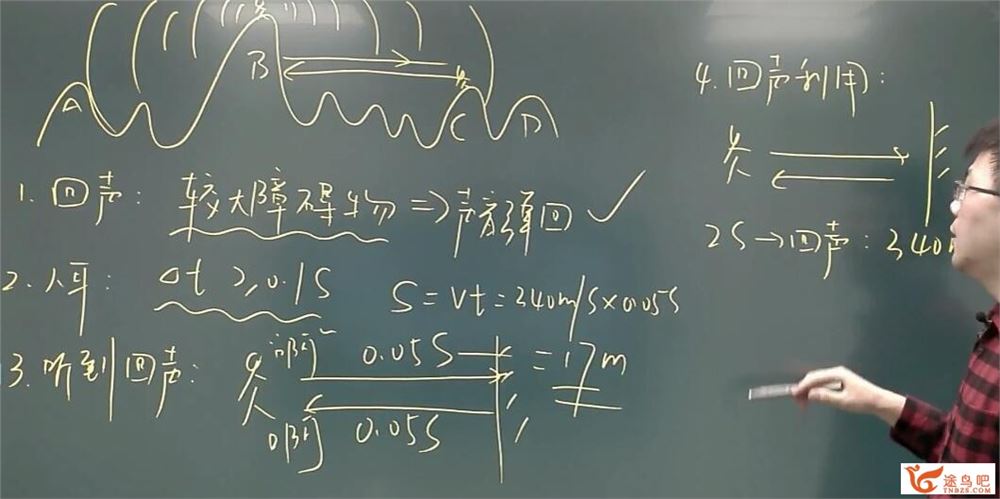 A B C D
1. 回声: 较大障碍物 ⇒ 声音弹回 ✓
2. 人耳: Δt ≥ 0.1S
S = Vt = 340m/s×0.05S
= 17m
3. 听到回声:
啊~ 0.05S
啊 0.05S
4. 回声利用:
2S → 回声: 340
途鸟吧
TNBZS.COM